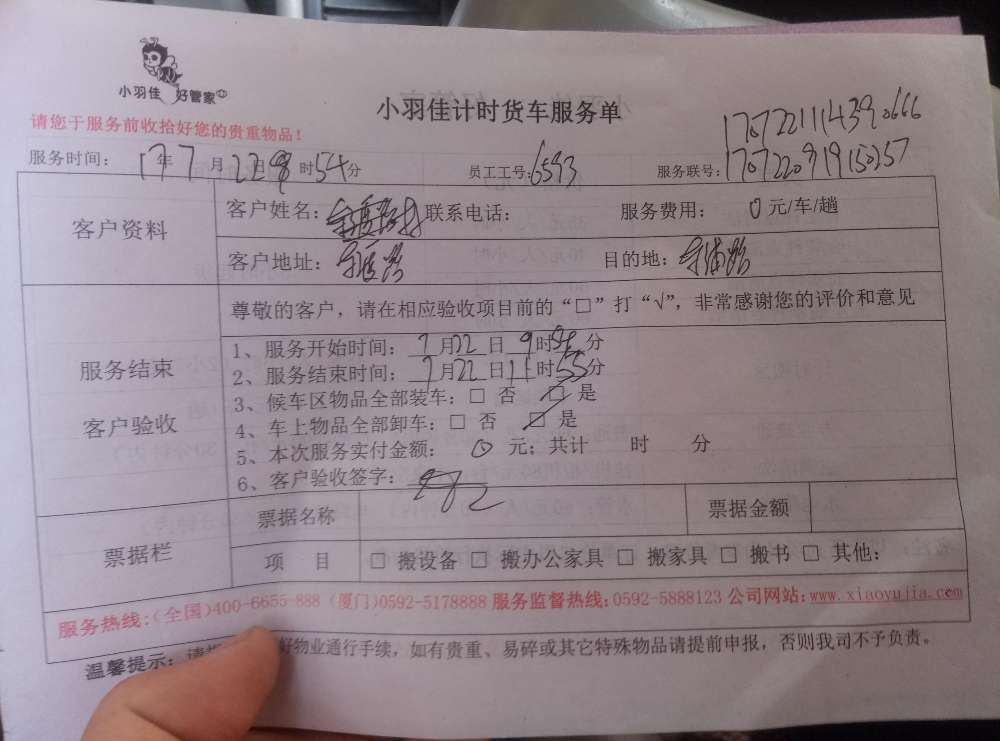 小羽佳 好管家
小羽佳计时货车服务单
请您于服务前收拾好您的贵重物品！
1707221114390666
服务时间： 17年7月22日 时54分 员工工号：6593 服务联号：1707220919150257
客户资料
客户姓名： 联系电话： 服务费用： 0 元/车/趟
客户地址： 目的地：
尊敬的客户，请在相应验收项目前的“□”打“√”，非常感谢您的评价和意见
服务结束
客户验收
1、服务开始时间： 7月22日 9时 分
2、服务结束时间： 7月22日11时55分
3、候车区物品全部装车：□ 否 ☑ 是
4、车上物品全部卸车：□ 否 ☑ 是
5、本次服务实付金额： 0 元；共计 时 分
6、客户验收签字：
票据栏
票据名称 票据金额
项 目 □ 搬设备 □ 搬办公家具 □ 搬家具 □ 搬书 □ 其他：
服务热线：(全国)400-6655-888 (厦门)0592-5178888 服务监督热线：0592-5888123 公司网站：www.xiaoyujia.com
温馨提示： 好物业通行手续，如有贵重、易碎或其它特殊物品请提前申报，否则我司不予负责。